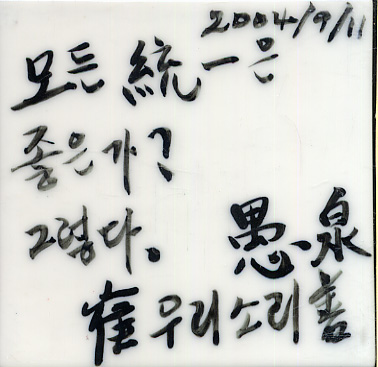 2004/9/11
모든 統一은
좋은가?
그렇다。
愚泉
崔우리소리善